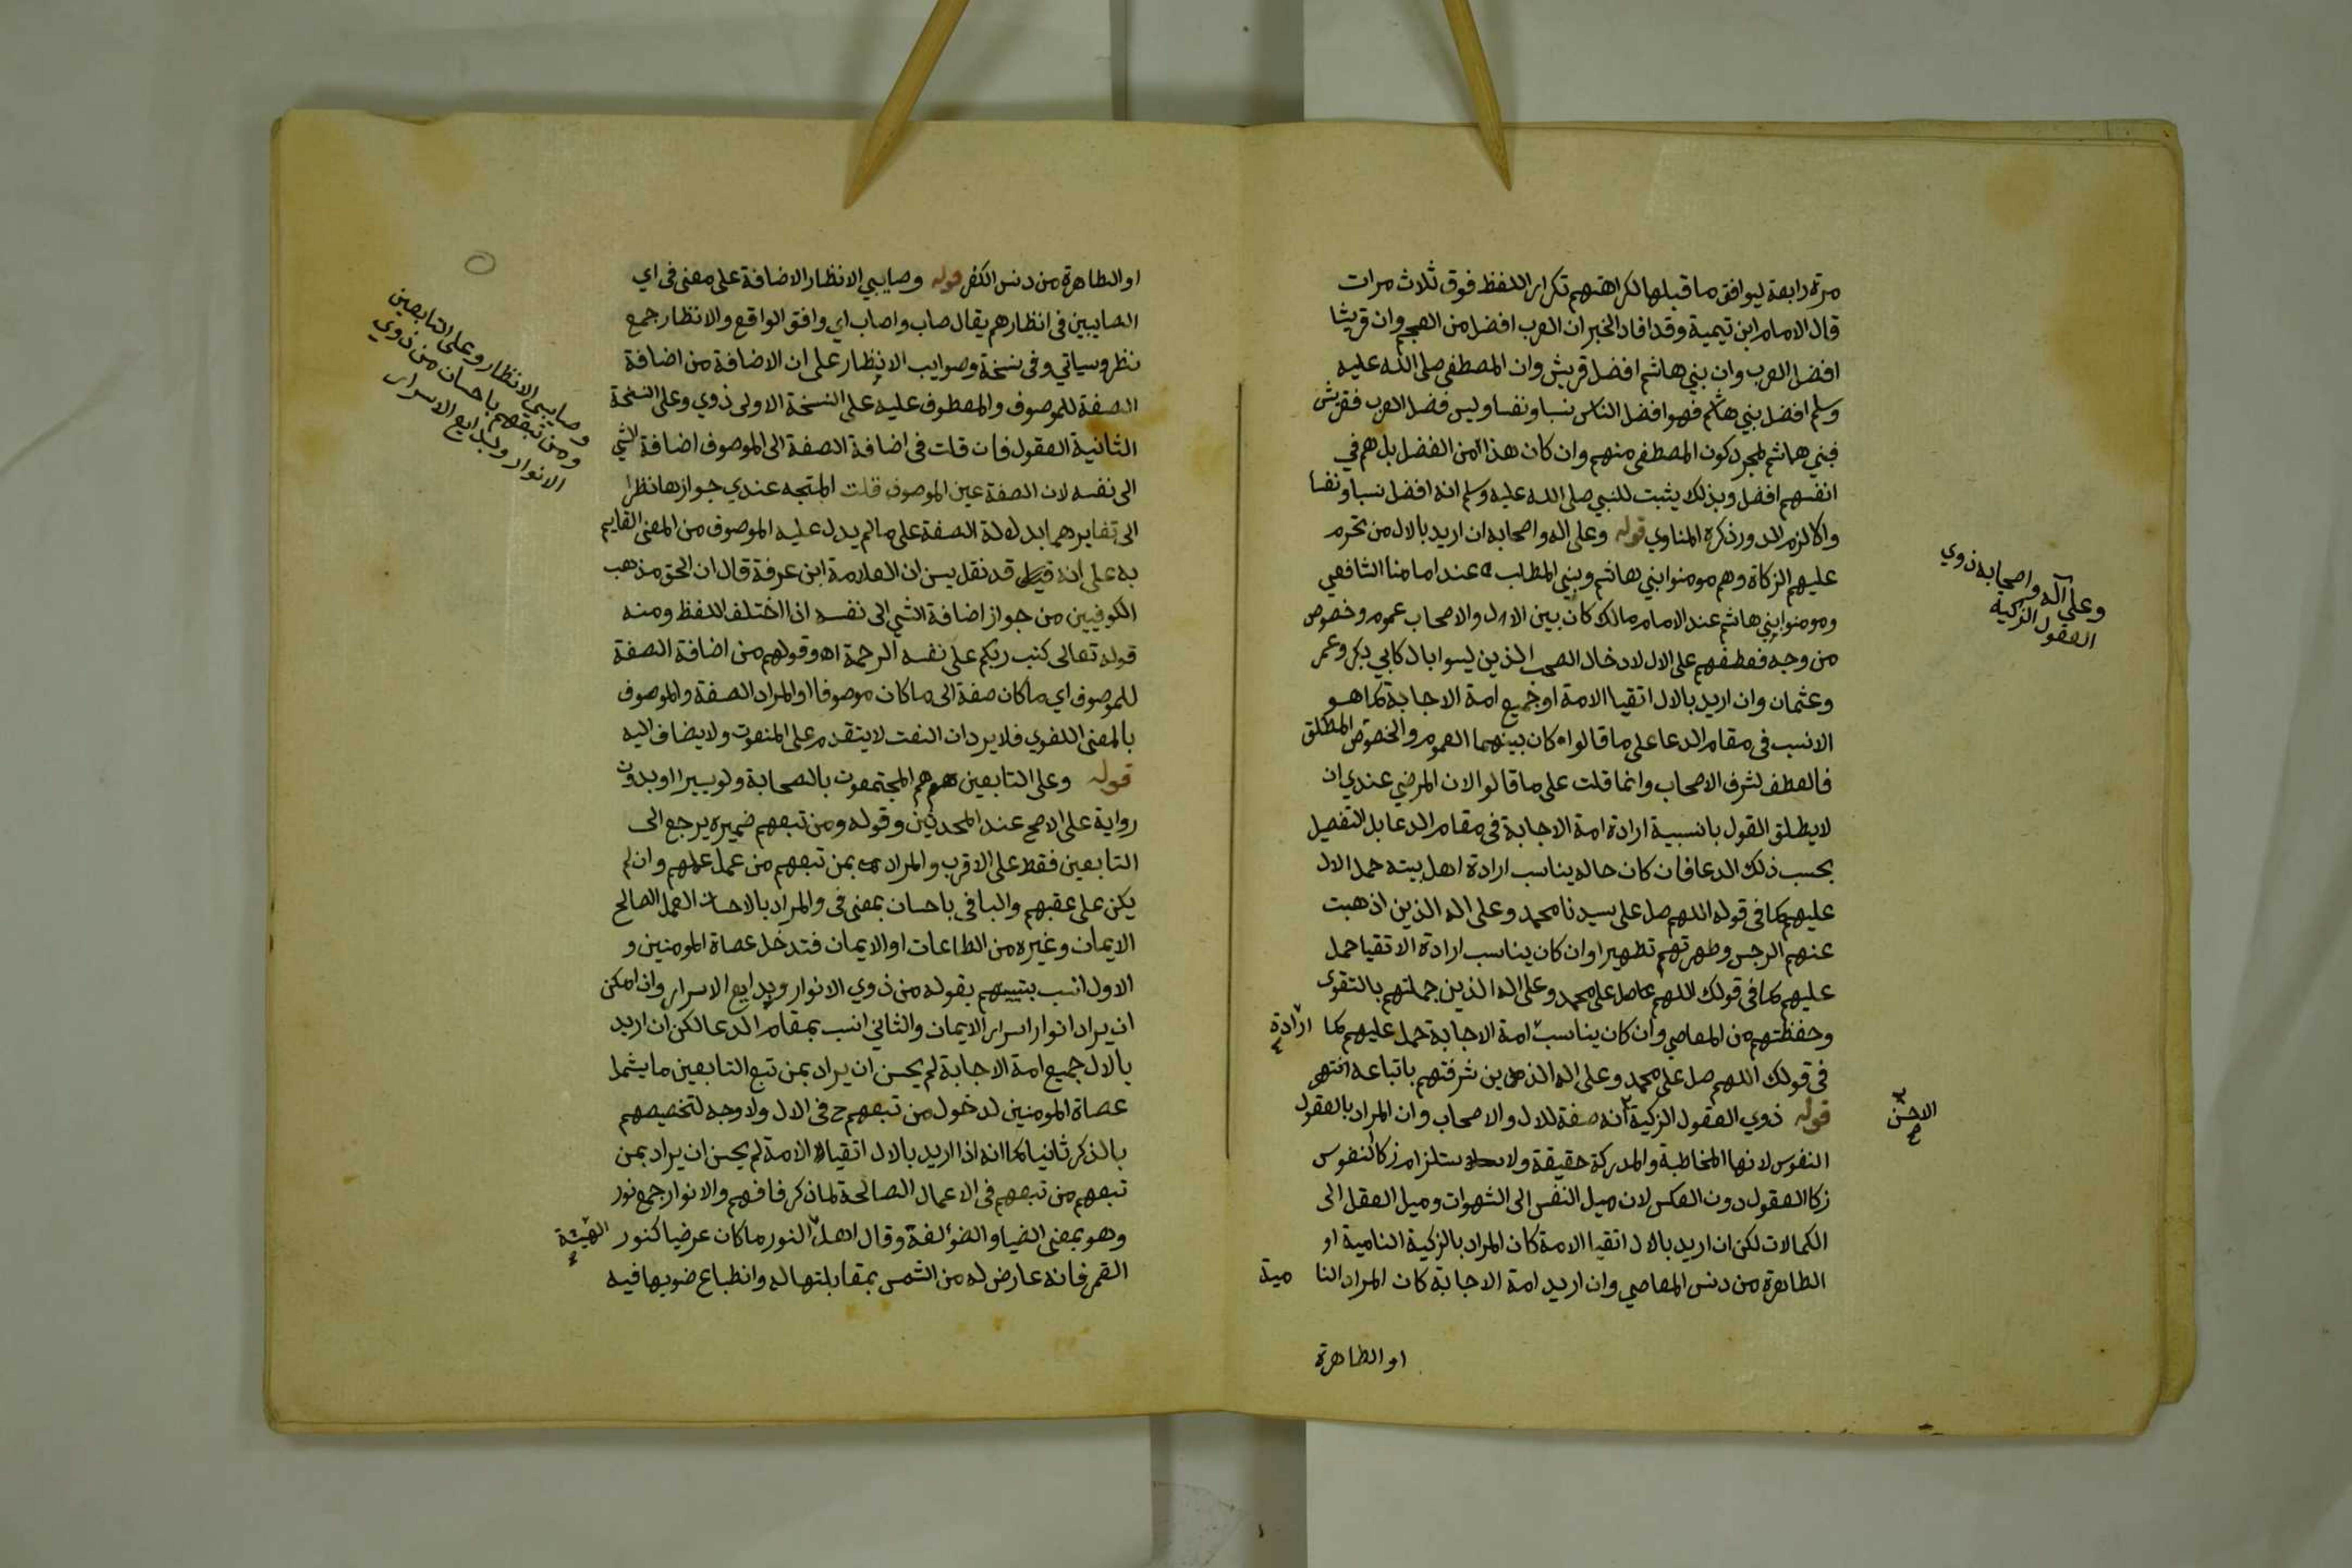 مرة رابعة ليوافق ما قبلها لكراهتهم تكرار اللفظ فوق ثلاث مرات
قال الامام ابن تيمية وقد افاد الخبر ان العرب افضل من العجم وان قريشا
افضل العرب وان بني هاشم افضل قريش وان المصطفى صلى الله عليه
وسلم افضل بني هاشم فهو افضل الناس نسبا ونفسا وليس فضل العرب فقريش
فبني هاشم لمجرد كون المصطفى منهم وان كان هذا من الفضل بل هم في
انفسهم افضل وبذلك يثبت للنبي صلى الله عليه وسلم انه افضل نسبا ونفسا
والا لزم الدور ذكره المناوي قوله وعلى اله واصحابه ان اريد بالال من تحرم
عليهم الزكاة وهم مومنوا بني هاشم وبني المطلب عند امامنا الشافعي
ومومنوا بني هاشم عند الامام مالك كان بين الال والاصحاب عموم وخصوص
من وجه فعطفهم على الال لادخال الصحب الذين ليسوا بال كابي بكر وعمر
وعثمان وان اريد بالال اتقيا الامة او جميع امة الاجابة كما هو
الانسب في مقام الدعا على ما قالوا كان بينهما العموم والخصوص المطلق
فالعطف لشرف الاصحاب وانما قلت على ما قالوا لان المرضي عندي ان
لا يطلق القول بانسبية ارادة امة الاجابة في مقام الدعا بل التفصيل
بحسب ذلك الدعا فان كان حاله يناسب ارادة اهل بيته حمل الال
عليهم كما في قوله اللهم صل على سيدنا محمد وعلى اله الذين اذهبت
عنهم الرجس وطهرتهم تطهيرا وان كان يناسب ارادة الاتقيا حمل
عليهم كما في قولك اللهم صل على محمد وعلى اله الذين جملتهم بالتقوى
وحفظتهم من المعاصي وان كان يناسب امة الاجابة حمل عليهم كما
ارادة
في قولك اللهم صل على محمد وعلى اله الذين شرفتهم باتباعه انتهى
قوله ذوي العقول الزكية انه صفة للال والاصحاب وان المراد بالعقول
النفوس لانها المخاطبة والمدركة حقيقة ولاستلزام زكا النفوس
زكا العقول دون العكس لان ميل النفس الى الشهوات وميل العقل الى
الكمالات لكن ان اريد بالال اتقيا الامة كان المراد بالزكية النامية او
الطاهرة من دنس المعاصي وان اريد امة الاجابة كان المراد النامية
او الطاهرة
وعلى آله واصحابه ذوي
العقول الزكية
الاحسن
او الطاهرة من دنس الكفر قوله وصايبي الانظار الاضافة على معنى في اي
الصايبين في انظارهم يقال صاب واصاب اي وافق الواقع والانظار جمع
نظر وسياتي وفي نسخة وصوايب الانظار على ان الاضافة من اضافة
الصفة للموصوف والمعطوف عليه على النسخة الاولى ذوي وعلى النسخة
الثانية العقول فان قلت في اضافة الصفة الى الموصوف اضافة الشي
الى نفسه لان الصفة عين الموصوف قلت المتجه عندي جوازها نظرا
الى تغايرهما بدلالة الصفة على ما لم يدل عليه الموصوف من المعنى القايم
به على انه قد نقل يس ان العلامة ابن عرفة قال ان الحق مذهب
الكوفيين من جواز اضافة الشي الى نفسه اذا اختلف اللفظ ومنه
قوله تعالى كتب ربكم على نفسه الرحمة اه وقولهم من اضافة الصفة
للموصوف اي ما كان صفة الى ما كان موصوفا او المراد الصفة والموصوف
بالمعنى اللغوي فلا يرد ان النعت لا يتقدم على المنعوت ولا يضاف اليه
قوله وعلى التابعين هم المجتمعون بالصحابة ولو يسيرا او بدون
رواية على الاصح عند المحدثين وقوله ومن تبعهم ضميره يرجع الى
التابعين فقط على الاقرب والمراد بمن تبعهم من عمل عملهم وان لم
يكن على عقبهم والبا في باحسان بمعنى في والمراد بالاحسان العمل الصالح
الايمان وغيره من الطاعات او الايمان فتدخل عصاة المومنين و
الاول انسب بقوله من ذوي الانوار وبدايع الاسرار وان امكن
ان يراد انوار اسرار الايمان والثاني انسب بمقام الدعا لكن ان اريد
بالال جميع امة الاجابة لم يحسن ان يراد بمن تبع التابعين ما يشمل
عصاة المومنين لدخول من تبعهم ح في الال ولا وجه لتخصيصهم
بالذكر ثانيا كما انه اذا اريد بالال اتقيا الامة لم يحسن ان يراد بمن
تبعهم من تبعهم في الاعمال الصالحة لما ذكر فافهم والانوار جمع نور
وهو بمعنى الضيا والضو لغة وقال اهل النور ما كان عرضيا كنور
الهيئة
القمر فانه عارض له من الشمس بمقابلتها له وانطباع ضويها فيه
وصايبي الانظار وعلى التابعين
ومن تبعهم باحسان من ذوي
الانوار وبدايع الاسرار